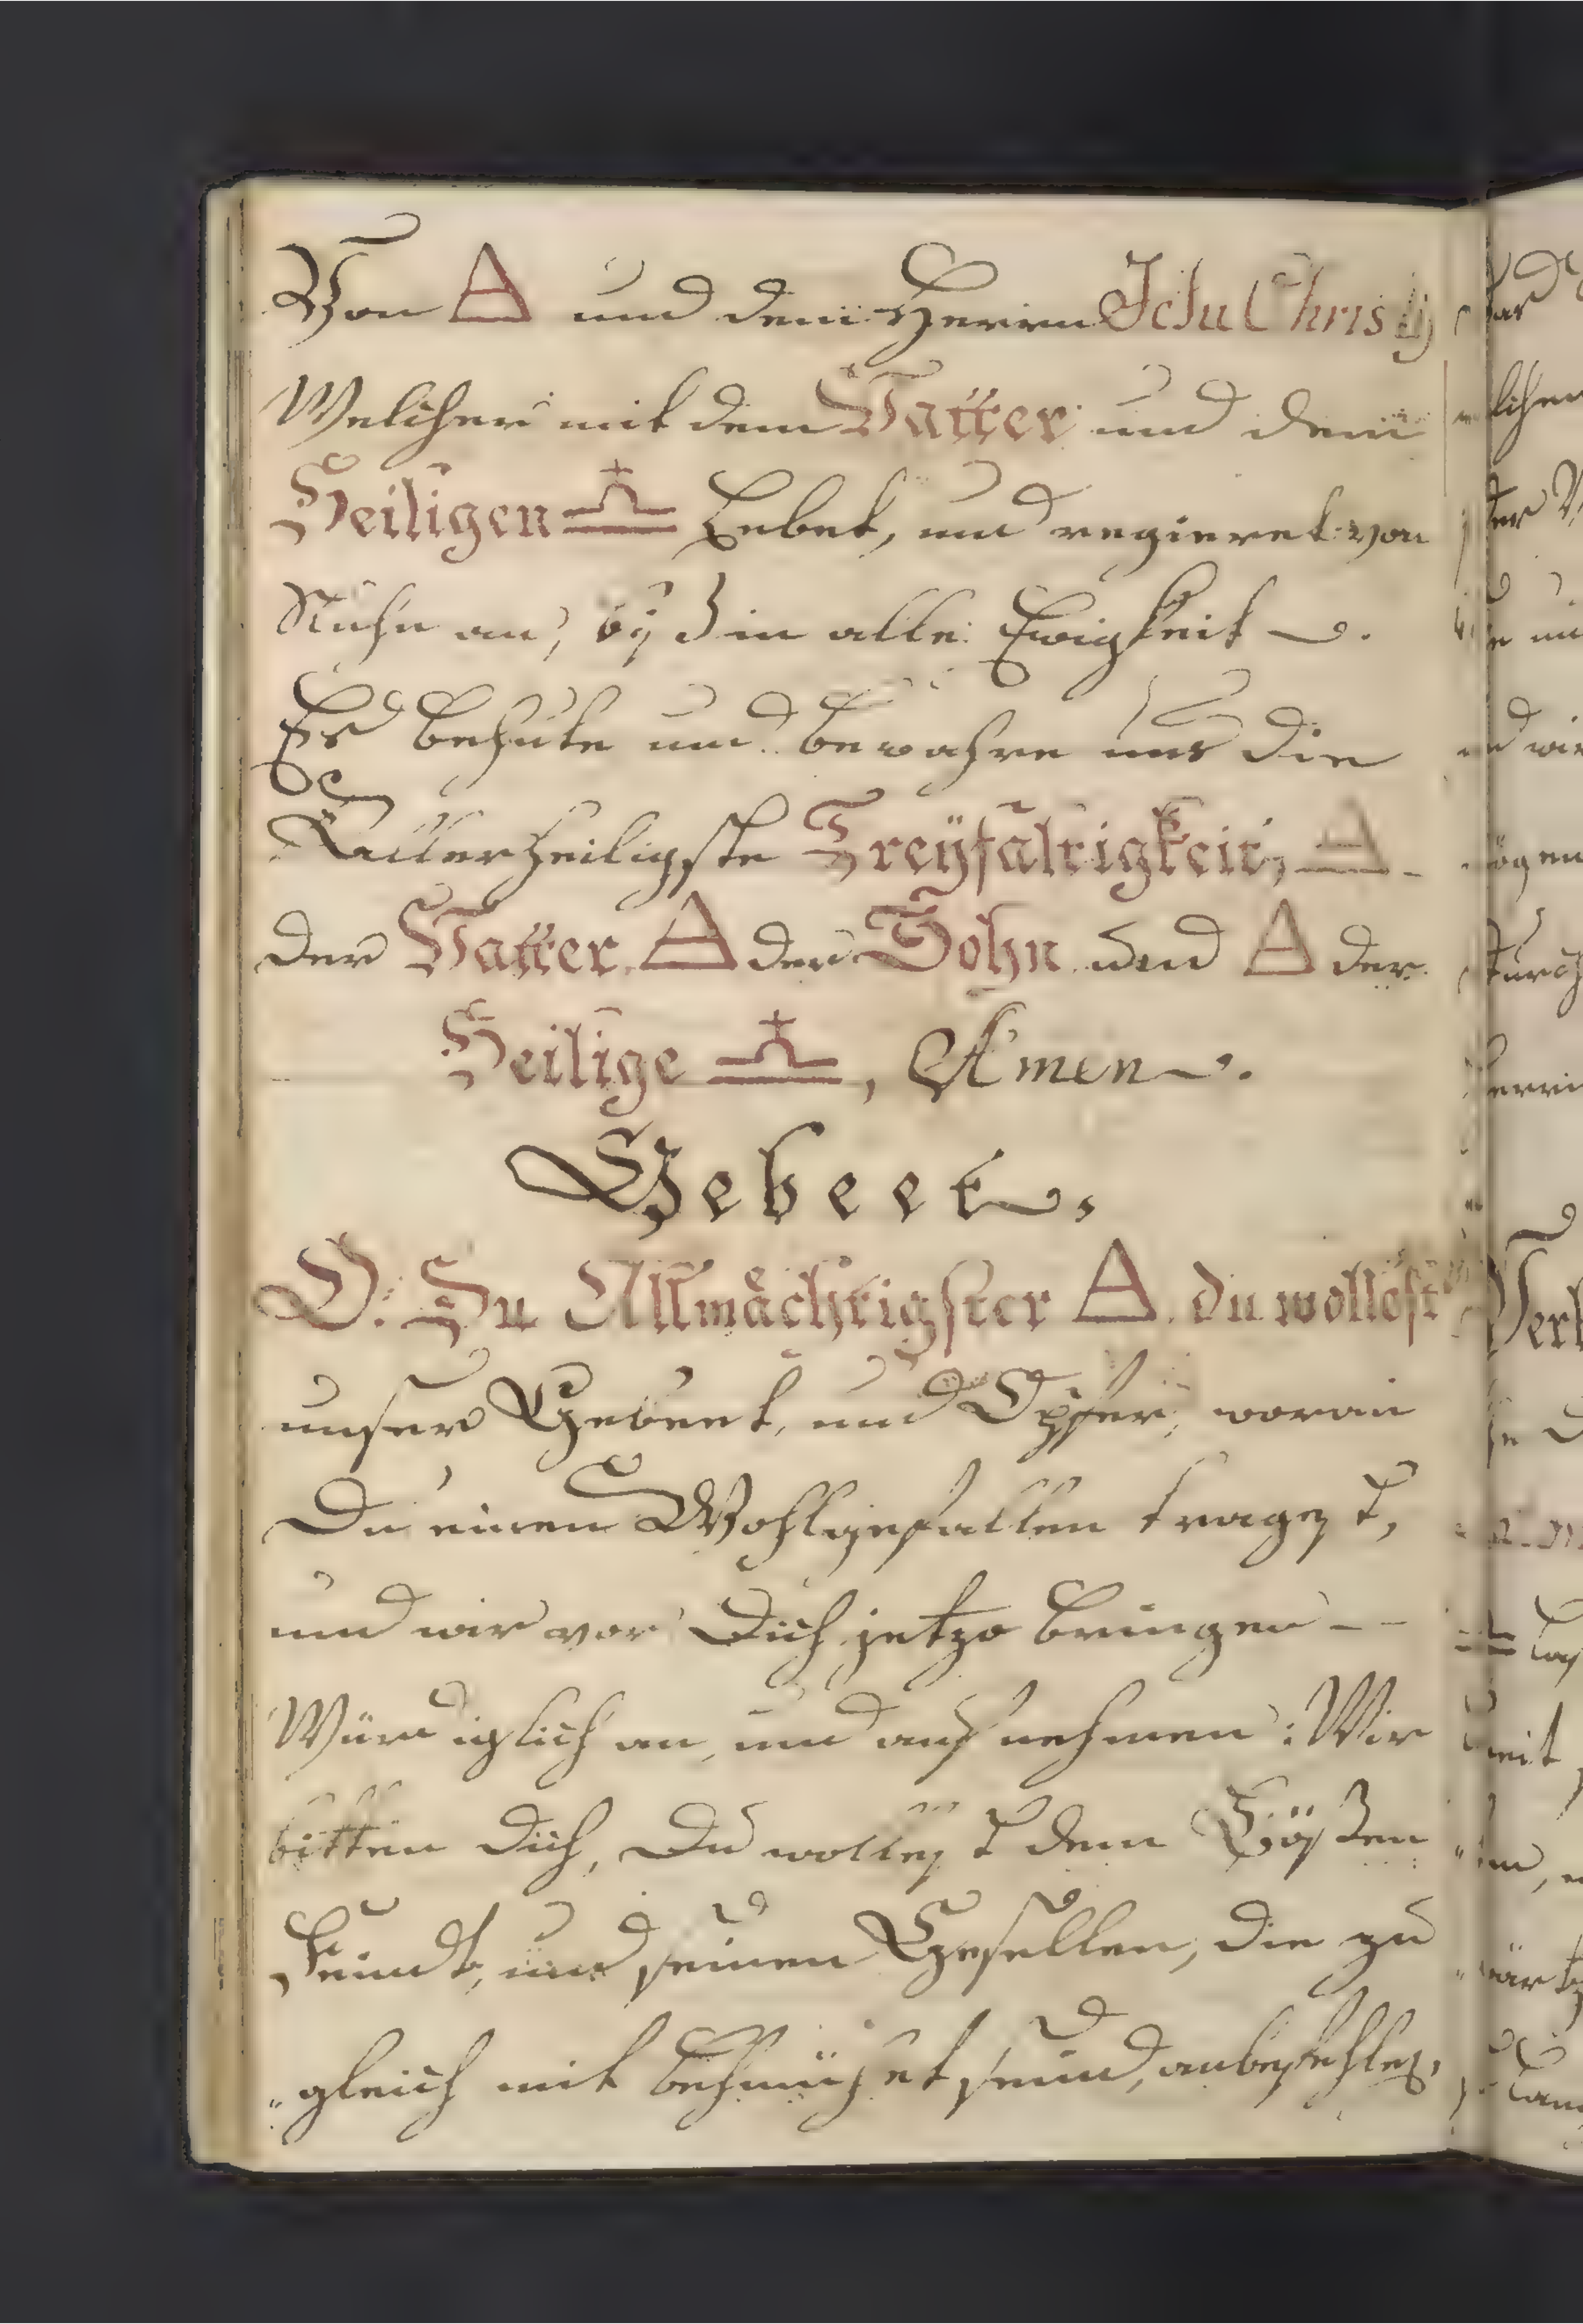 Von 🜁 und dem Herren Jesu Christj
Welcher mit dem Vatter und dem
Heiligen ♎ Lebet, und regieret von
Nuhn an, biß in alle Ewigkeit.
Es behüte und bewahre uns die
Allerheiligste Dreyfaltigkeit, 🜁
der Vatter 🜁 der Sohn und 🜁 der
Heilige ♎, Amen.
Gebeet.
O: Du Allmächtigster 🜁. du wollest
unser Gebeet, und Opfer, woran
Du einen Wohlgefallen tragest,
und wir vor Dich jetzo bringen - -
Würdiglich an, und aufnehmen: Wir
bitten dich, Du wollest dem Bößen
Feindt, und seinen Gesellen, die zu
"gleich mit behmühet seind, anbefehlen,